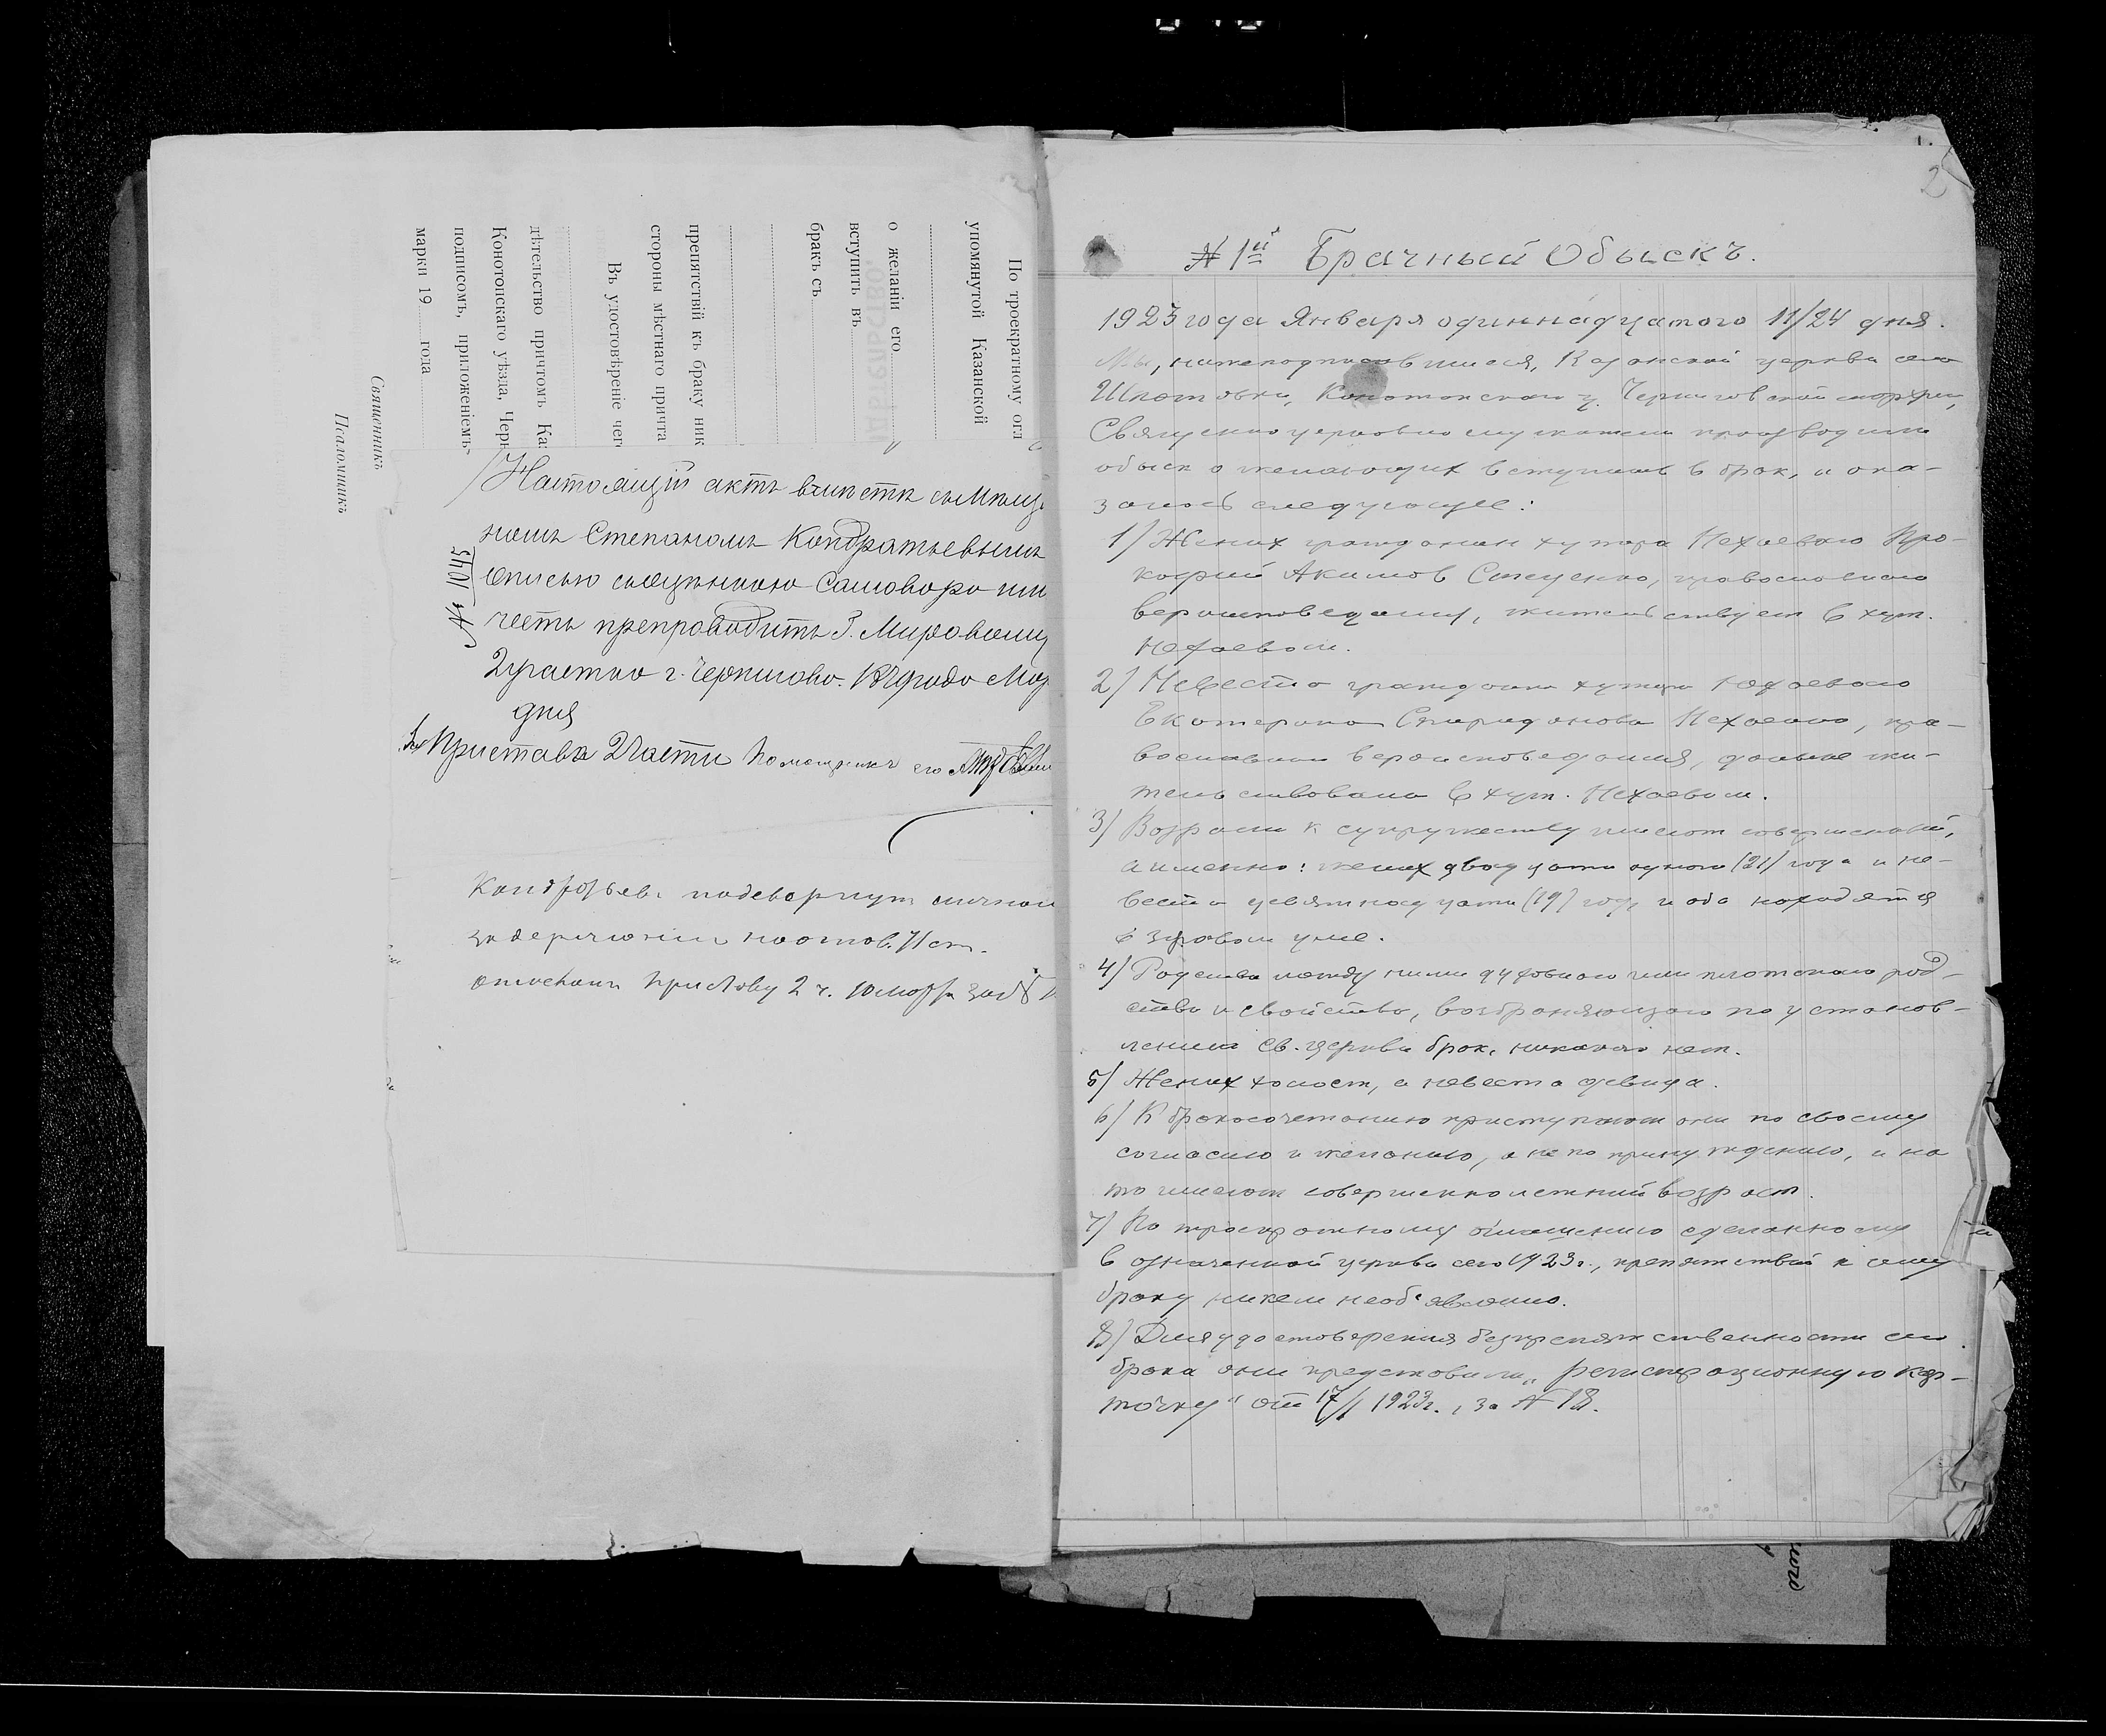 По троекратному огл
упомянутой Казанской
о желаніи его
вступить въ
бракъ съ
препятствій къ браку ник
стороны мѣстнаго причта
Въ удостовѣреніе чег
дѣтельство причтомъ Ка
Конотопскаго уѣзда, Черн
подписомъ, приложеніемъ
марки 19 года
Священникъ
Псаломщикъ
№ 11045
Настоящій актъ вмѣстѣ съ Мѣщ
номъ Степаномъ Кондратьевымъ
честь препроводить Г. Мировому
2 участка г. Чернигова.
дня
Пристава 2 Части Помощникъ его
Кондратьева подвергнут личном
2
№ 1й Брачный Обыскъ.
1923 года Января одиннадцатого 11/24 дня.
Мы, нижеподписавшиеся, Казанской церкви села
Шпотовки, Конотопского у. Черниговской епархии,
Священно церковно служители производили
обыск о желающих вступить в брак, и ока-
залось следующее:
1) Жених гражданин хутора Нехаевого Про-
кофий Акимов Стеценко, православного
вероисповедания, жительствует в хут.
Нехаевом.
2) Невеста гражданка хутора Нехаевого
Екатерина Спиридонова Нехаева, пра-
вославного вероисповедания, доныне жи-
тельствовала в хут. Нехаевом.
3) Возраст к супружеству имеют совершенный,
а именно: жених двадцати одного (21) года и не-
веста девятнадцати (19) год. и оба находятся
в здравом уме.
4) Родства между ними духовного или плотского род-
ства и свойства, возбраняющаго по установ-
лению св. церкви брак, никакого нет.
5) Жених холост, а невеста девица.
6) К бракосочетанию приступают они по своему
согласию и желанию, а не по принуждению, и на
то имеют совершеннолетний возраст.
7) По троекратному оглашению сделанному
в означенной церкви сего 1923 г., препятствий к сему
браку никем необ'явлено.
8) Для удостоверения безпрепятственности сего
брака они представили „регистрационную кар-
точку" от 17/I 1923 г., за № 18.